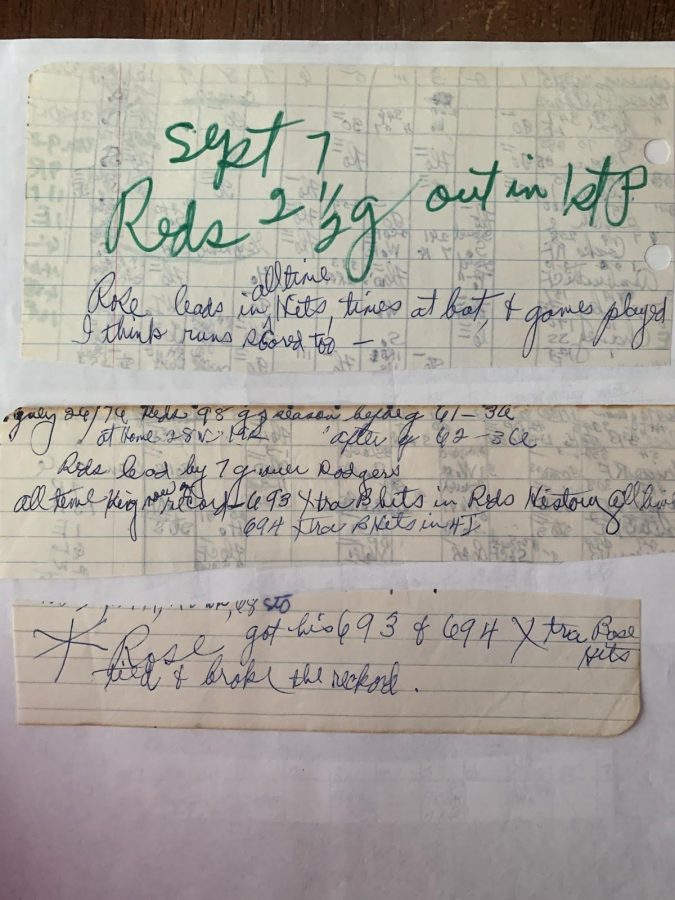 Sept 7
Reds 2 1/2 g out in 1st P
all time
Rose leads in, Hits, times at bat, & games played
I think runs scored too —
July 26/76 Reds 98 g season before g 61-36
at Home 28 W 19L after g 62-36
Reds lead by 7 g over Dodgers
now on
all time King record - 693 Xtra B hits in Reds History all time
694 Xtra B Hits in 4 I
sto
Rose got his 693 & 694 Xtra Base
Hits
tied & broke the reckord.